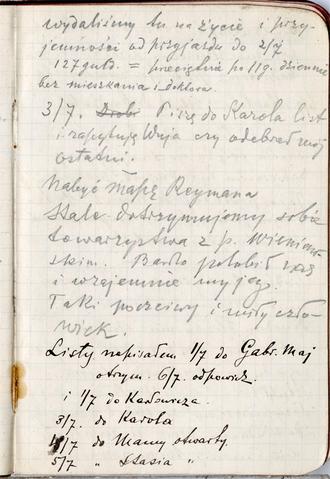 wydaliśmy tu na życie i przy-
jemności od przyjazdu do 2/7
127 guld. = przeciętnie po 11 g. dziennie
bez mieszkania i doktora.
3/7. Piszę do Karola list
i zapytuję Wuja czy odebrał mój
ostatni.
Nabyć mapę Reymana
Stale dotrzymujemy sobie
towarzystwa z p. Wiśniew-
skim. Bardzo polubił nas
i wzajemnie my jego.
Taki poczciwy i miły czło-
wiek.
Listy napisałem 1/7 do Gabr. Maj
otrzym. 6/7. odpowiedź.
i 1/7 do Karłowicza.
3/7. do Karola
4/7 do Mamy otwarty.
5/7 " Stasia "